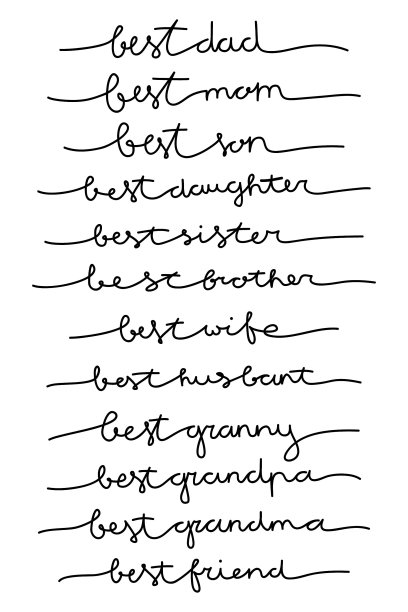 best dad
best mom
best son
best daughter
best sister
best brother
best wife
best husbant
best granny
best grandpa
best grandma
best friend